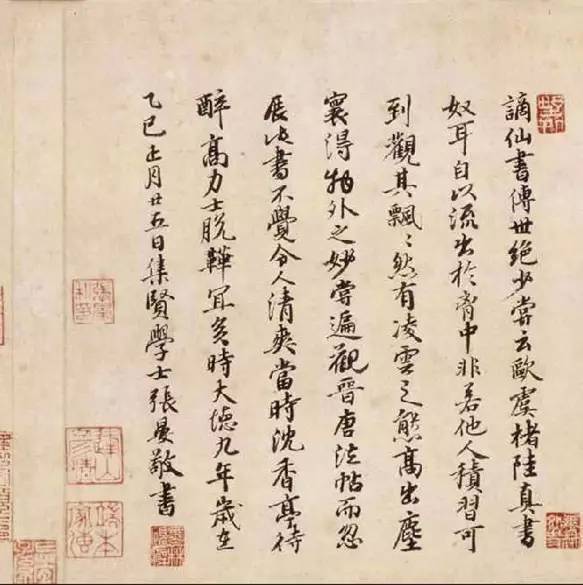 謫仙書傳世絶少嘗云歐虞褚陸真書
奴耳自以流出於胷中非若他人積習可
到觀其飄〻然有凌雲之態高出塵
寰得物外之妙嘗遍觀晉唐法帖而忽
展此書不覺令人清爽當時沈香亭待
醉高力士脫鞾宜矣時大德九年歲在
乙巳正月廿五日集賢學士張晏敬書